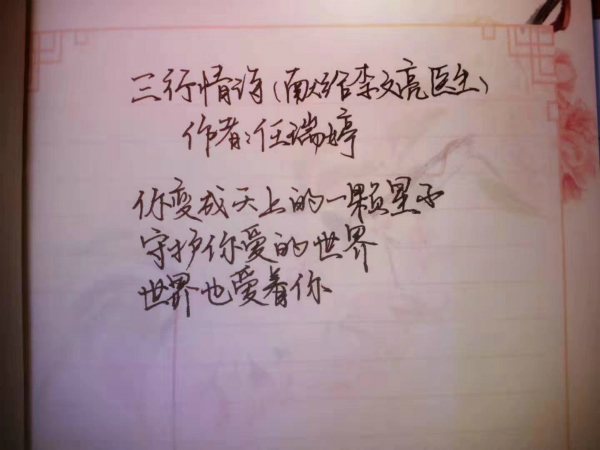 三行情诗(献给李文亮医生)
作者:任瑞婷
你变成天上的一颗星子
守护你爱的世界
世界也爱着你